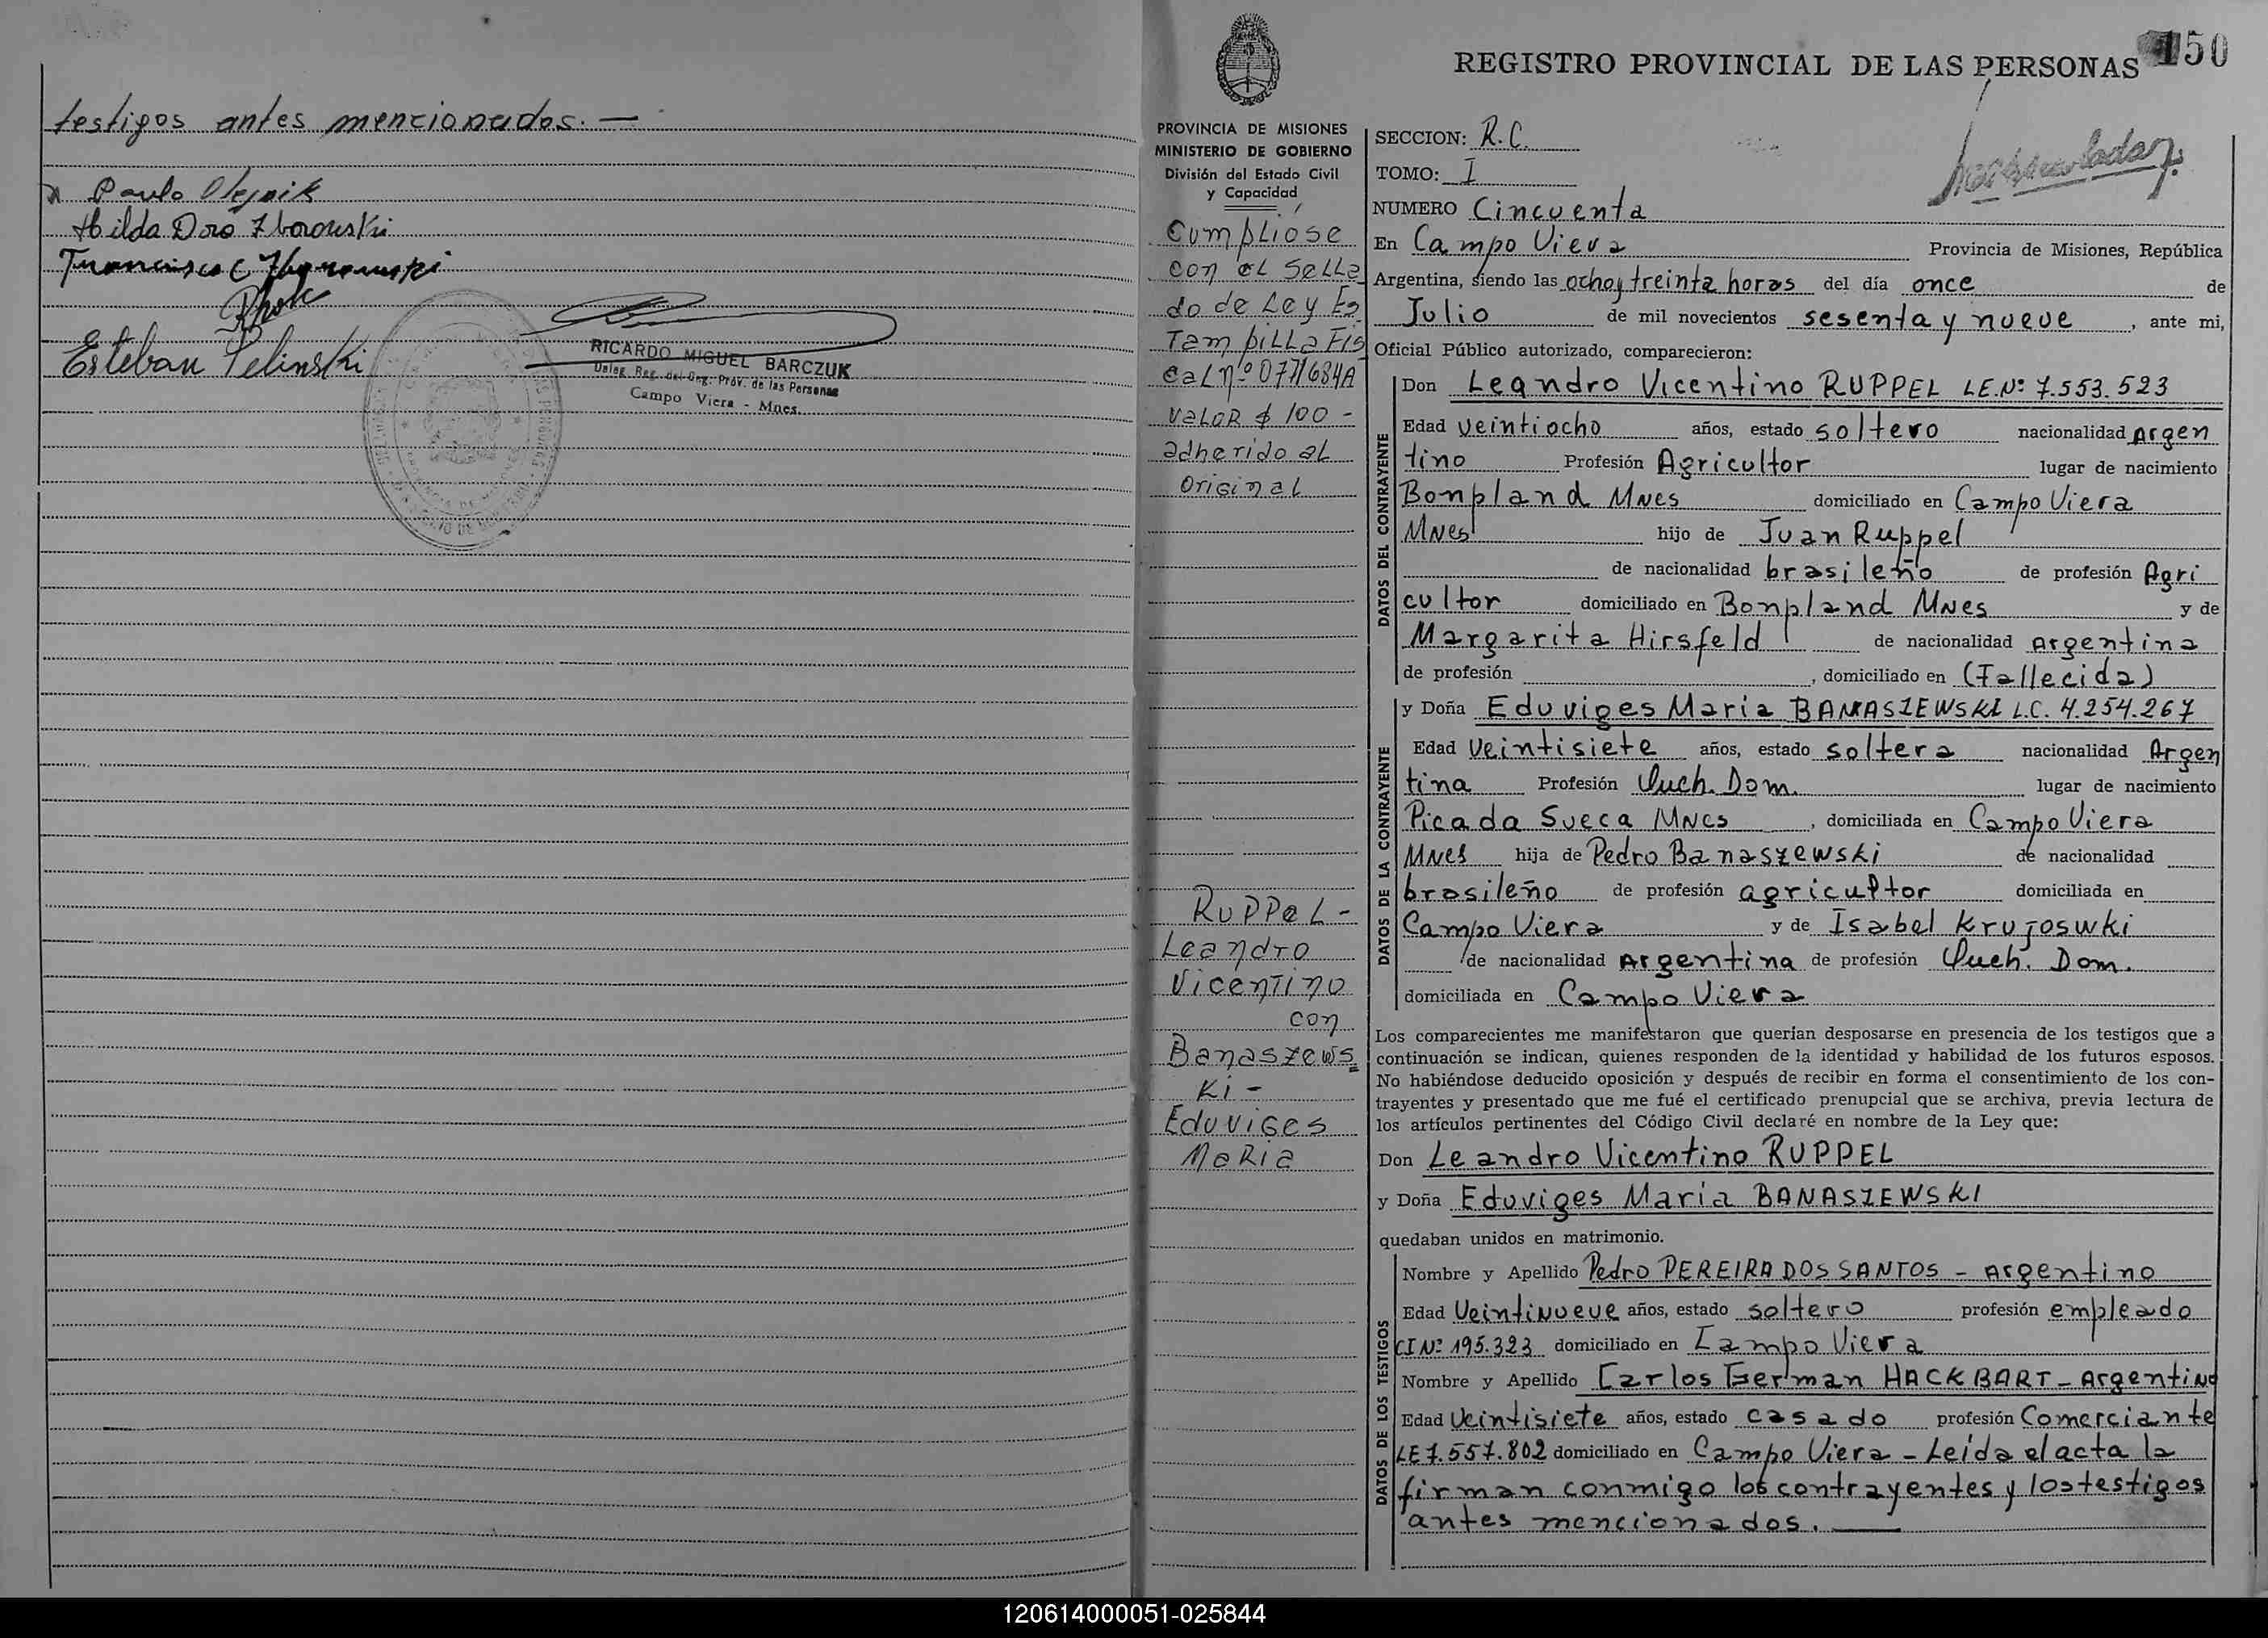 testigos antes mencionados. —
Paulo Olejnik
Hilda Doro Zborowski
Francisco C Zborowski
Esteban Pelinski
RICARDO MIGUEL BARCZUK
Deleg. Reg. del Org. Prov. de las Personas
Campo Viera - Mnes.
150
REGISTRO PROVINCIAL DE LAS PERSONAS
PROVINCIA DE MISIONES
MINISTERIO DE GOBIERNO
División del Estado Civil
y Capacidad
Cumplióse
con el sella
do de Ley Es
Tampilla Fis
cal nº 0771684A
valor $ 100 -
adherido al
original
Ruppel -
Leandro
Vicentino
con
Banaszews
ki -
Eduviges
Maria
SECCION: R.C.
TOMO: I
NUMERO Cincuenta
En Campo Viera Provincia de Misiones, República
Argentina, siendo las ocho y treinta horas del día once de
Julio de mil novecientos sesenta y nueve , ante mi,
Oficial Público autorizado, comparecieron:
DATOS DEL CONTRAYENTE
Don Leandro Vicentino RUPPEL LE.Nº 7.553.523
Edad veintiocho años, estado soltero nacionalidad Argen
tino Profesión Agricultor lugar de nacimiento
Bonpland Mnes domiciliado en Campo Viera
Mnes hijo de Juan Ruppel
de nacionalidad brasileño de profesión Agri
cultor domiciliado en Bonpland Mnes y de
Margarita Hirsfeld de nacionalidad Argentina
de profesión , domiciliado en (Fallecida)
DATOS DE LA CONTRAYENTE
y Doña Eduviges Maria BANASZEWSKI L.C. 4.254.267
Edad veintisiete años, estado soltera nacionalidad Argen
tina Profesión Queh. Dom. lugar de nacimiento
Picada Sueca Mnes , domiciliada en Campo Viera
Mnes hija de Pedro Banaszewski de nacionalidad
brasileño de profesión agricultor domiciliada en
Campo Viera y de Isabel Krujoswki
de nacionalidad Argentina de profesión Queh. Dom.
domiciliada en Campo Viera
Los comparecientes me manifestaron que querían desposarse en presencia de los testigos que a
continuación se indican, quienes responden de la identidad y habilidad de los futuros esposos.
No habiéndose deducido oposición y después de recibir en forma el consentimiento de los con-
trayentes y presentado que me fué el certificado prenupcial que se archiva, previa lectura de
los artículos pertinentes del Código Civil declaré en nombre de la Ley que:
Don Leandro Vicentino RUPPEL
y Doña Eduviges Maria BANASZEWSKI
quedaban unidos en matrimonio.
DATOS DE LOS TESTIGOS
Nombre y Apellido Pedro PEREIRA DOS SANTOS - Argentino
Edad Veintinueve años, estado soltero profesión empleado
CI Nº 195.323 domiciliado en Campo Viera
Nombre y Apellido Carlos German HACKBART - Argentino
Edad Veintisiete años, estado casado profesión Comerciante
LE 7.557.802 domiciliado en Campo Viera - Leída el acta la
firman conmigo los contrayentes y los testigos
antes mencionados. —
120614000051-025844